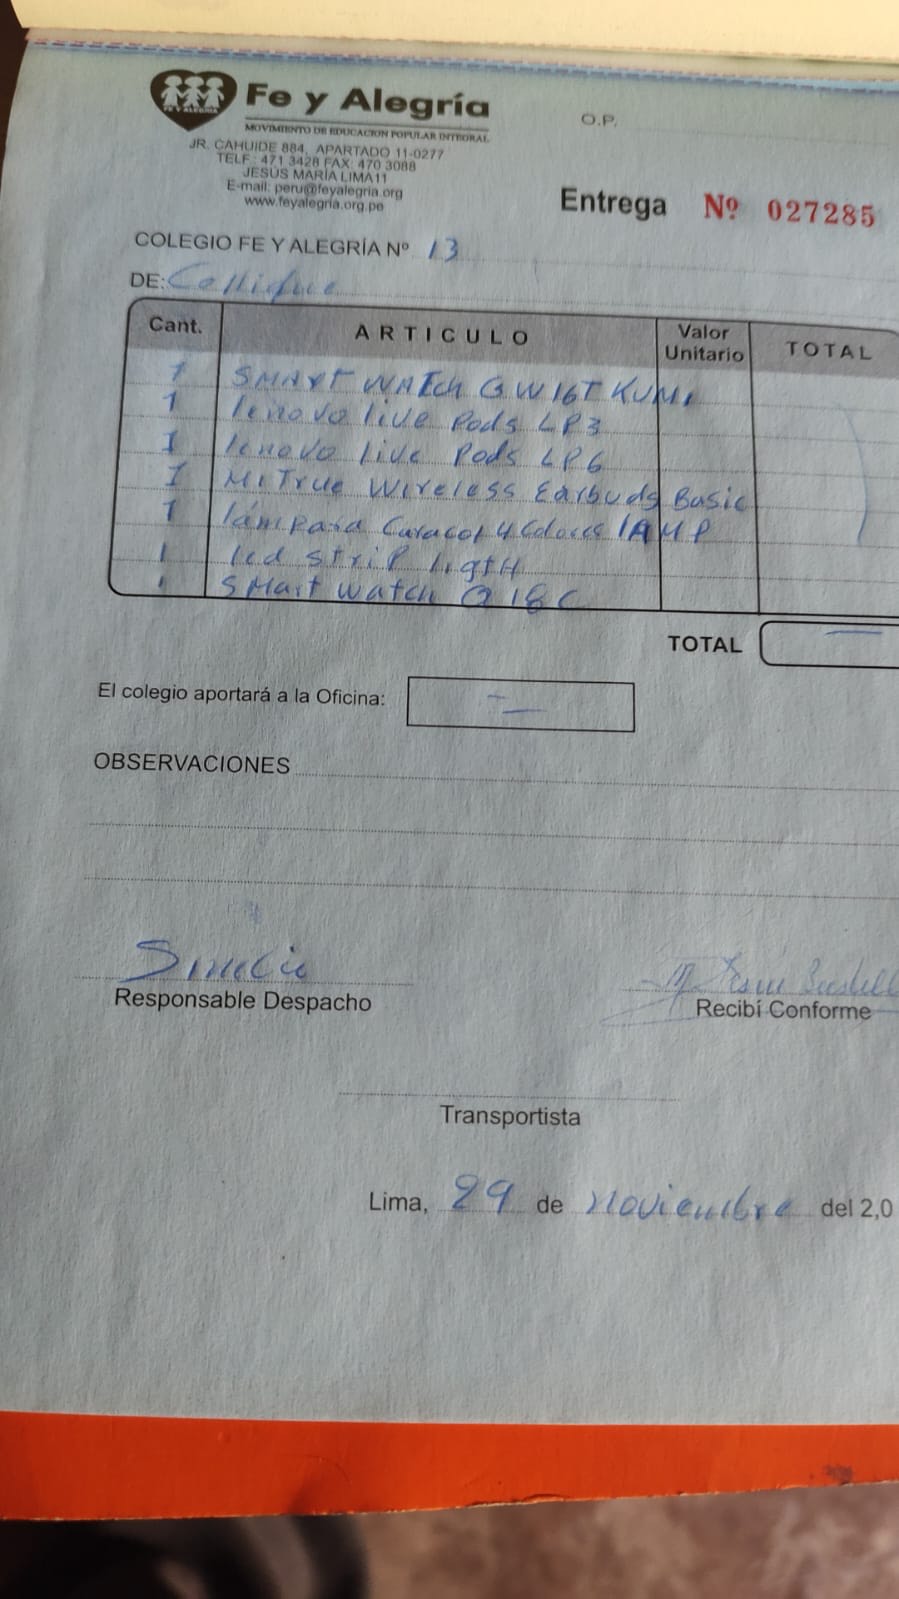 FE Y ALEGRIA
Fe y Alegría
MOVIMIENTO DE EDUCACION POPULAR INTEGRAL
JR. CAHUIDE 884, APARTADO 11-0277
TELF : 471 3428 FAX: 470 3088
JESÚS MARÍA LIMA11
E-mail: peru@feyalegria.org
www.feyalegria.org.pe
O.P.
Entrega Nº 027285
COLEGIO FE Y ALEGRÍA Nº 13
DE: Collique
Cant. ARTICULO Valor Unitario TOTAL
1 SMART WATCH GW16T KUMI
1 lenovo live Pods LP3
1 lenovo live Pods LP6
1 Mi True Wireless Earbuds Basic
1 lámpara Caracol 4 Colores lAMP
1 led strip ligtH
1 SMart watch Q18C
TOTAL —
El colegio aportará a la Oficina: —
OBSERVACIONES
Responsable Despacho
Recibí Conforme
Transportista
Lima, 29 de noviembre del 2,0